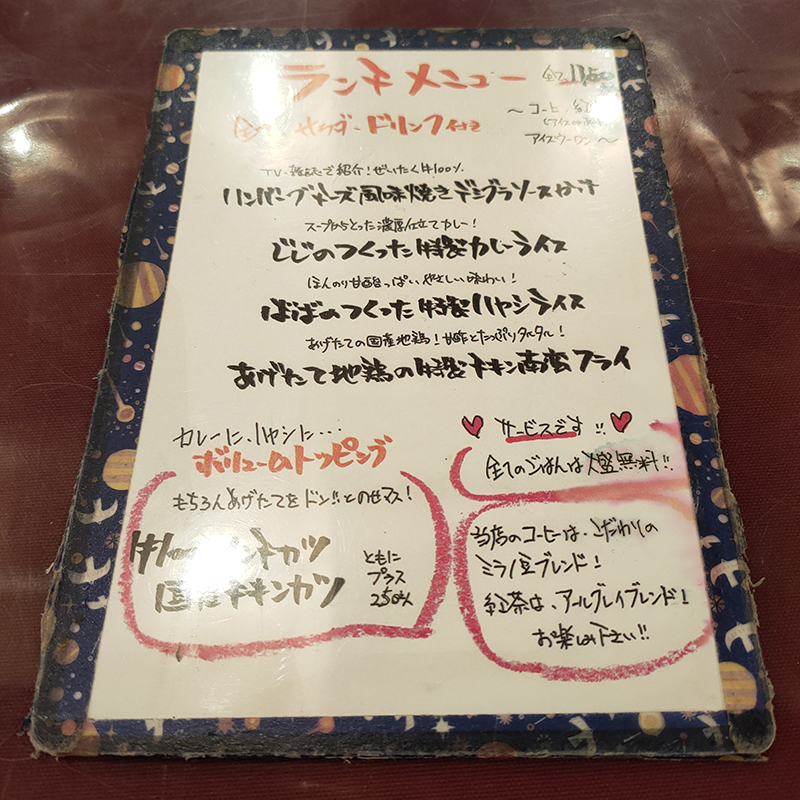 ランチメニュー
全て サラダ・ドリンク付き
〜コーヒ 紅
アイスウーロン〜
TV・雑誌で紹介!ぜいたく牛100%
ハンバーグチーズ風味焼きデミグラソースがけ
スープからとった濃厚仕立てカレー!
じじのつくった特製カレーライス
ほんのり甘酸っぱい、やさしい味わい!
ばばのつくった特製ハヤシライス
あげたての国産地鶏!甘酢とたっぷりタルタル!
あげたて地鶏の特製チキン南蛮フライ
カレーに、ハヤシに・・・
ボリュームトッピング
もちろんあげたてをドン!!とのせマス!
チカツ
国産チキンカツ
ともに
プラス
250円
サービスです!!
全てのごはんは大盛無料!!
当店のコーヒーは、こだわりの
ミラノ豆ブレンド!
紅茶は、アールグレイブレンド!
お楽しみ下さい!!